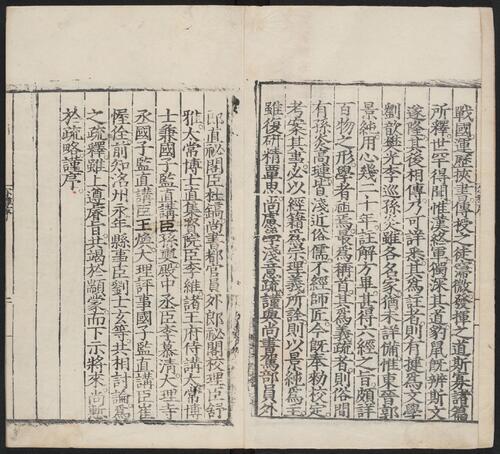 戰國運歷挾書傳授之徒寖微發揮之道斯寡諸篇
所釋世罕得聞惟漢終軍獨深其道豹鼠既辨斯文
遂隆其後相傳乃可詳悉其為註者則有揵為文學
劉歆樊光李巡孫炎雖各名家猶未詳備惟東晉郭
景純用心幾二十年註解方畢甚得六經之旨頗詳
百物之形學者祖焉最為稱首其為義疏者則俗間
有孫炎高璉皆淺近俗儒不經師匠今既奉勑校定
考案其事必以經籍為宗理義所詮則以景純為主
雖復研精覃思尚慮學淺意疏謹與尚書駕部員外
郎直祕閣臣杜鎬尚書都官員外郎祕閣校理臣舒
雅太常博士直集賢院臣李維諸王府侍講太常博
士兼國子監直講臣孫奭殿中丞臣李慕清大理寺
丞國子監直講臣王煥大理評事國子監直講臣崔
偓佺前知洺州永年縣事臣劉士玄等共相討論為
之疏釋雖上遵睿旨共竭於顓蒙而下示將來尚慚
於疏略謹序